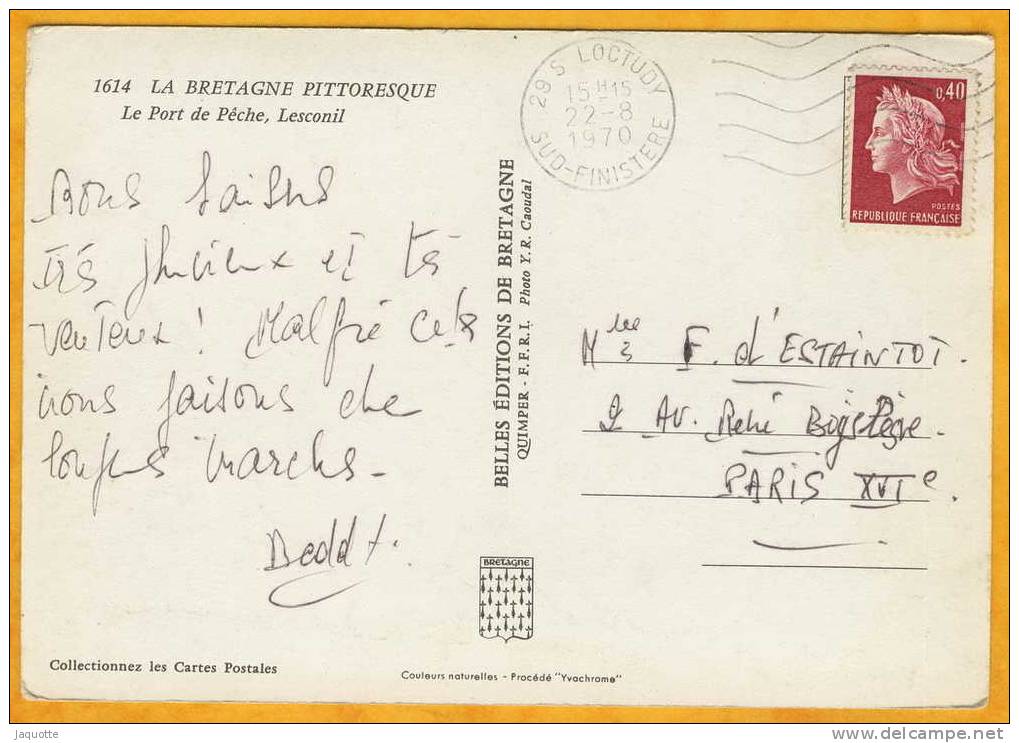 1614 LA BRETAGNE PITTORESQUE
Le Port de Pêche, Lesconil
29 S LOCTUDY
15 H 15
22-8
1970
SUD-FINISTERE
0,40
POSTES
REPUBLIQUE FRANÇAISE
très et
venteux ! Malgré cela
nous faisons de
longues marches -
BELLES ÉDITIONS DE BRETAGNE
QUIMPER - E.F.R.I. Photo Y. R. Caoudal
F. d'ESTAINTOT.
2 AV. René Boylesve -
PARIS XVIe.
BRETAGNE
Collectionnez les Cartes Postales
Couleurs naturelles - Procédé "Yvachrome"
Jaquotte
www.delcampe.net